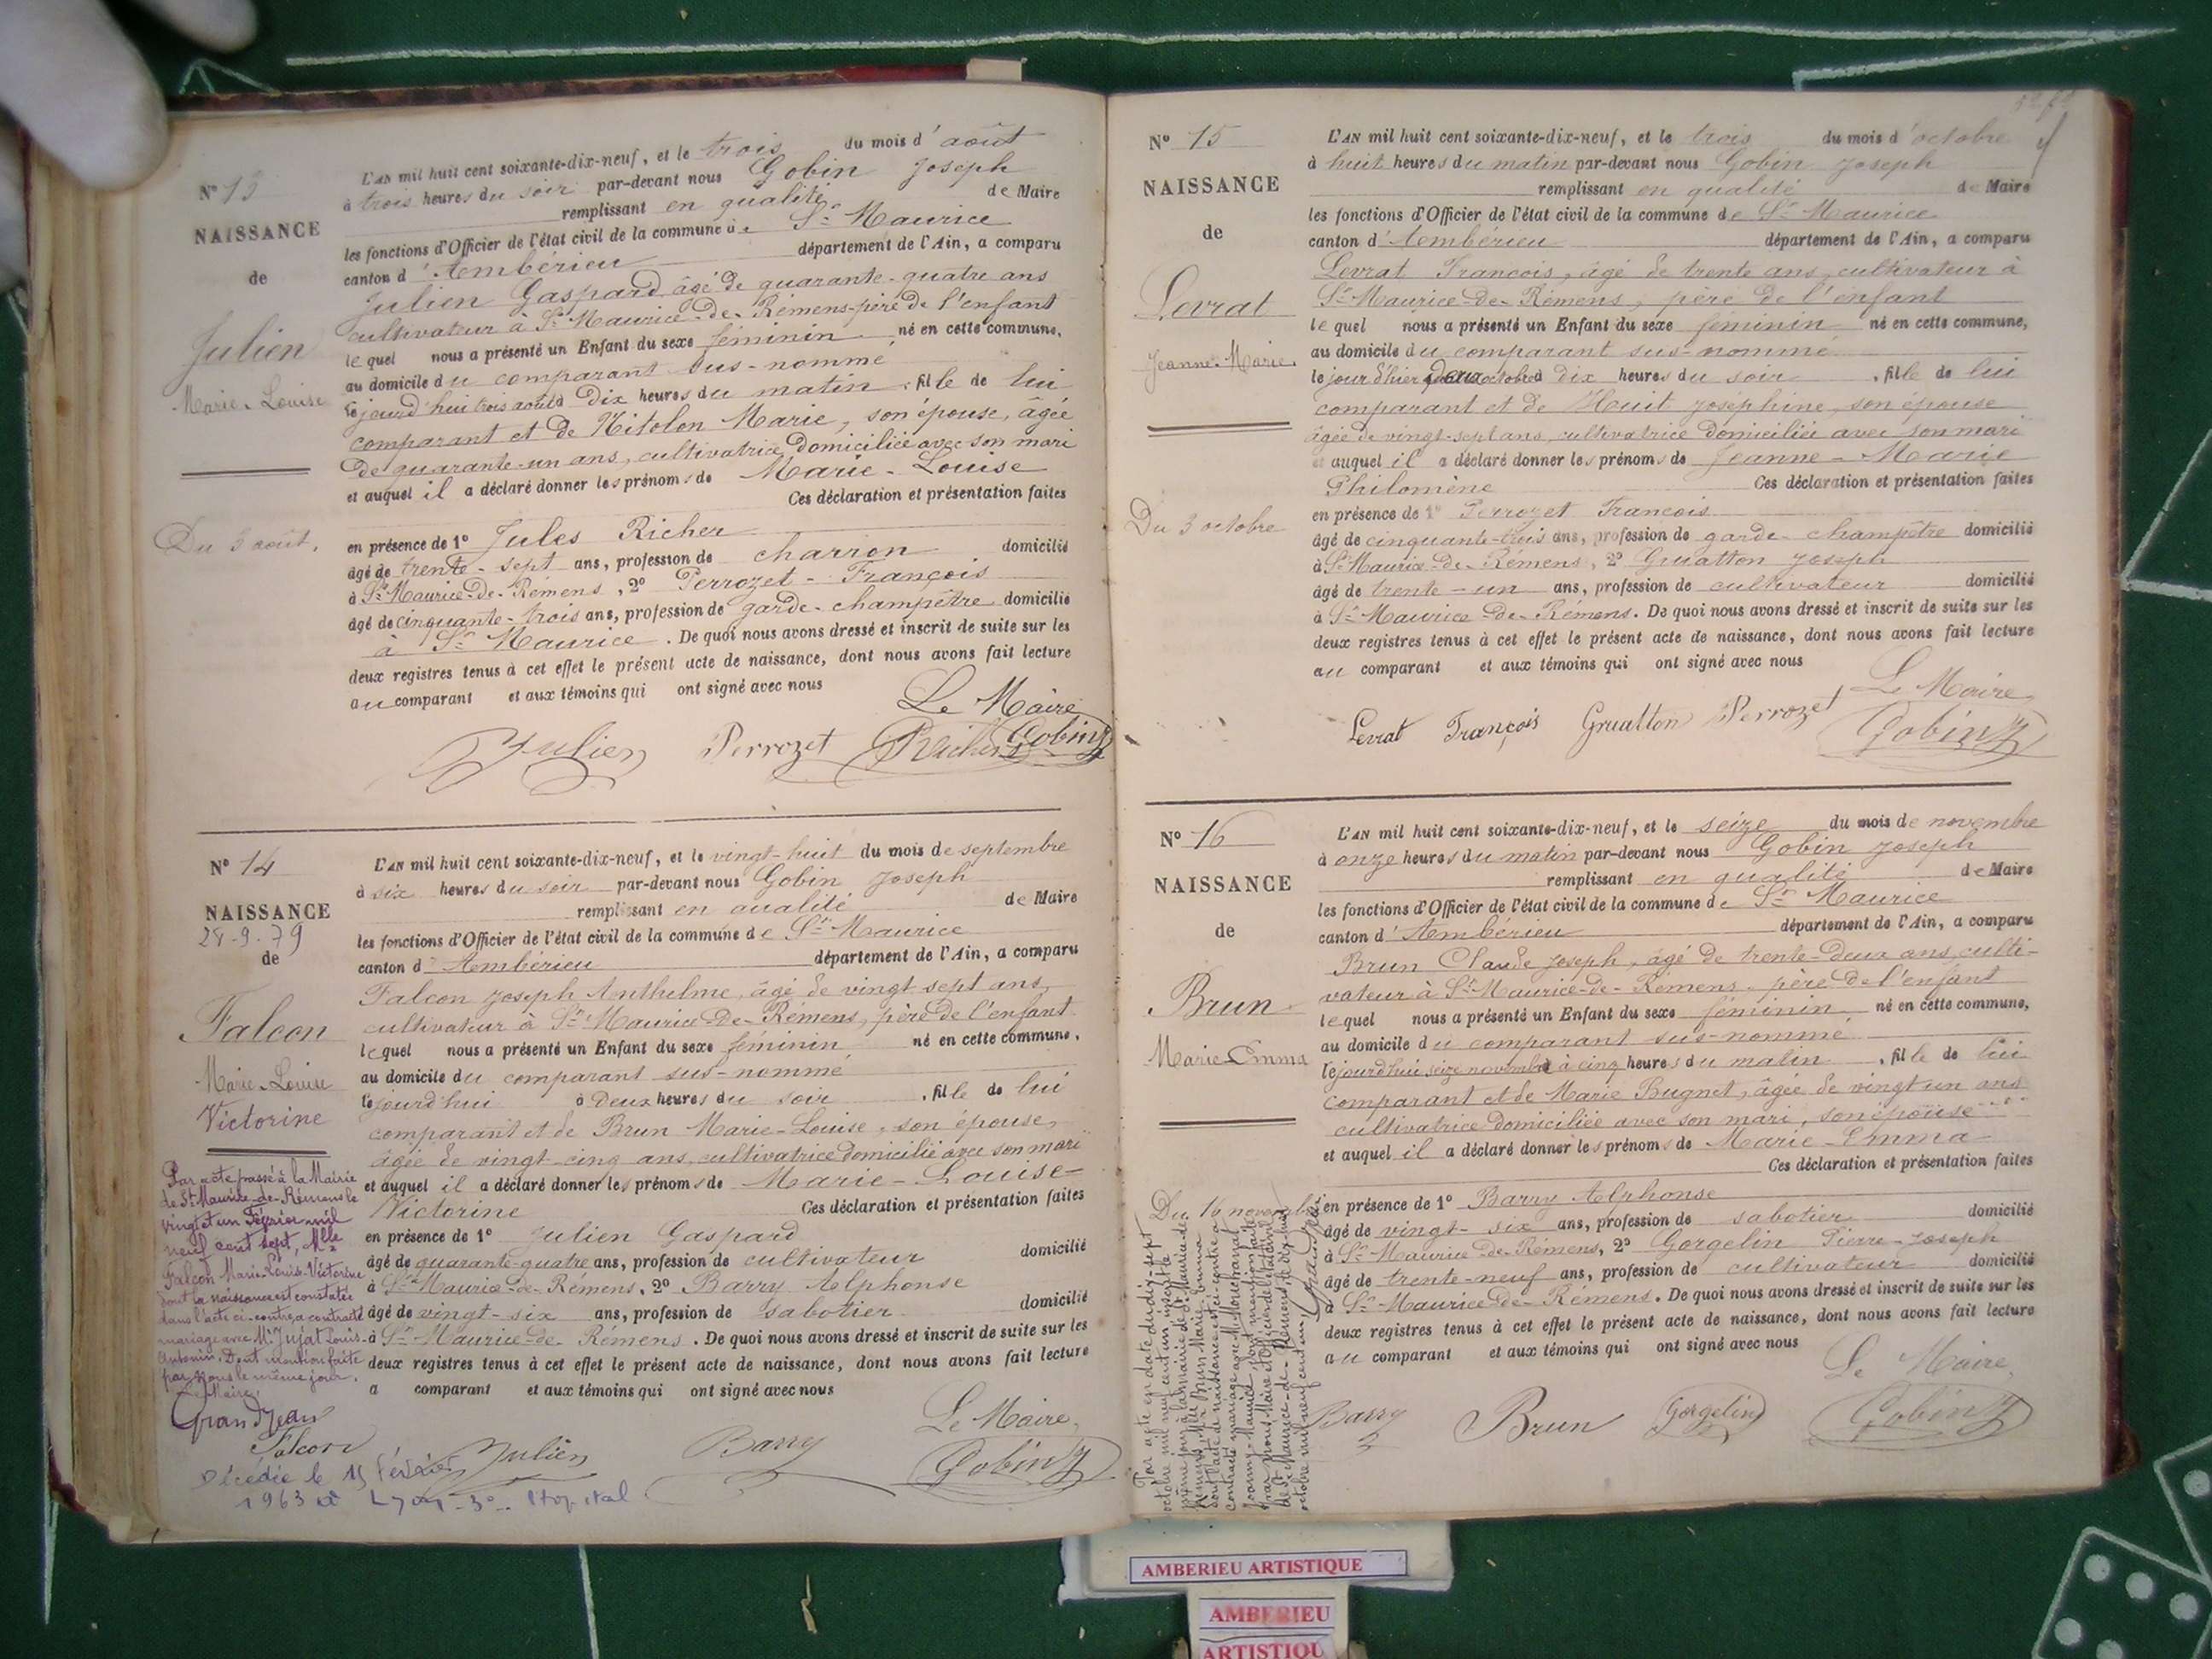 N° 13
NAISSANCE
de
Julien
Marie-Louise
Du 3 août.
L'AN mil huit cent soixante-dix-neuf, et le trois du mois d'août
à trois heures du soir par-devant nous Gobin Joseph
remplissant en qualité de Maire
les fonctions d'Officier de l'état civil de la commune de St Maurice
canton d'Ambérieu département de l'Ain, a comparu
Julien Gaspard âgé de quarante-quatre ans
cultivateur à St Maurice-de-Rémens père de l'enfant
lequel nous a présenté un Enfant du sexe féminin né en cette commune,
au domicile du comparant sus-nommé
lejourd'hui trois août à dix heures du matin, fille de lui
comparant et de Nitolon Marie, son épouse, âgée
de quarante-un ans, cultivatrice domiciliée avec son mari
et auquel il a déclaré donner les prénoms de Marie-Louise
Ces déclaration et présentation faites
en présence de 1° Jules Richer
âgé de trente-sept ans, profession de charron domicilié
à St Maurice-de-Rémens, 2° Perrozet-François
âgé de cinquante-trois ans, profession de garde-champêtre domicilié
à St Maurice. De quoi nous avons dressé et inscrit de suite sur les
deux registres tenus à cet effet le présent acte de naissance, dont nous avons fait lecture
au comparant et aux témoins qui ont signé avec nous
Le Maire
Julien Perrozet Richer Gobin
N° 14
NAISSANCE
28-9-79
de
Falcon
Marie-Louise
Victorine
Par acte passé à la Mairie
de St Maurice-de-Rémens le
vingt et un Février mil
neuf cent sept, Mlle
Falcon Marie-Louis-Victorine
dont la naissance est constatée
dans l'acte ci-contre a contracté
mariage avec Mr Jujat Louis-
Antonin. Dont mention faite
par nous le même jour.
Le Maire,
Grandjean
L'AN mil huit cent soixante-dix-neuf, et le vingt-huit du mois de septembre
à six heures du soir par-devant nous Gobin Joseph
remplissant en qualité de Maire
les fonctions d'Officier de l'état civil de la commune de St Maurice
canton d'Ambérieu département de l'Ain, a comparu
Falcon Joseph Anthelme, âgé de vingt sept ans,
cultivateur à St Maurice-de-Rémens, père de l'enfant
lequel nous a présenté un Enfant du sexe féminin né en cette commune,
au domicile du comparant sus-nommé
lejourd'hui à deux heures du soir, fille de lui
comparant et de Brun Marie-Louise, son épouse,
âgée de vingt-cinq ans, cultivatrice domicilié avec son mari
et auquel il a déclaré donner les prénoms de Marie-Louise-
Victorine Ces déclaration et présentation faites
en présence de 1° Julien Gaspard
âgé de quarante-quatre ans, profession de cultivateur domicilié
à St Maurice-de-Rémens, 2° Barry Alphonse
âgé de vingt-six ans, profession de sabotier domicilié
à St Maurice-de-Rémens. De quoi nous avons dressé et inscrit de suite sur les
deux registres tenus à cet effet le présent acte de naissance, dont nous avons fait lecture
a comparant et aux témoins qui ont signé avec nous
Le Maire,
Falcon Julien Barry Gobin
Décédée le 15 Février
1963 à Lyon-3e- Hopital
N° 15
NAISSANCE
de
Levrat
Jeanne-Marie
Du 3 octobre
L'AN mil huit cent soixante-dix-neuf, et le trois du mois d'octobre
à huit heures du matin par-devant nous Gobin Joseph
remplissant en qualité de Maire
les fonctions d'Officier de l'état civil de la commune de St Maurice
canton d'Ambérieu département de l'Ain, a comparu
Levrat François, âgé de trente ans, cultivateur à
St Maurice-de-Rémens, père de l'enfant
lequel nous a présenté un Enfant du sexe féminin né en cette commune,
au domicile du comparant sus-nommé
le jour d'hier deux octobre à dix heures du soir, fille de lui
comparant et de Huit Joséphine, son épouse
âgée de vingt-sept ans, cultivatrice domiciliée avec son mari
et auquel il a déclaré donner les prénoms de Jeanne-Marie
Philomène Ces déclaration et présentation faites
en présence de 1° Perrozet François
âgé de cinquante-trois ans, profession de garde-champêtre domicilié
à St Maurice-de-Rémens, 2° Gruatton Joseph
âgé de trente-un ans, profession de cultivateur domicilié
à St Maurice-de-Rémens. De quoi nous avons dressé et inscrit de suite sur les
deux registres tenus à cet effet le présent acte de naissance, dont nous avons fait lecture
au comparant et aux témoins qui ont signé avec nous
Le Maire
Levrat François Gruatton Perrozet Gobin
N° 16
NAISSANCE
de
Brun
Marie-Emma
Du 16 novembre
L'AN mil huit cent soixante-dix-neuf, et le seize du mois de novembre
à onze heures du matin par-devant nous Gobin Joseph
remplissant en qualité de Maire
les fonctions d'Officier de l'état civil de la commune de St Maurice
canton d'Ambérieu département de l'Ain, a comparu
Brun Claude Joseph, âgé de trente-deux ans, culti-
vateur à St Maurice-de-Rémens, père de l'enfant
lequel nous a présenté un Enfant du sexe féminin né en cette commune,
au domicile du comparant sus-nommé
lejourd'hui seize novembre à cinq heures du matin, fille de lui
comparant et de Marie Bugnet, âgée de vingt un ans
cultivatrice domiciliée avec son mari, son épouse
et auquel il a déclaré donner les prénoms de Marie-Emma
Ces déclaration et présentation faites
en présence de 1° Barry Alphonse
âgé de vingt-six ans, profession de sabotier domicilié
à St Maurice-de-Rémens, 2° Gorgelin Pierre-Joseph
âgé de trente-neuf ans, profession de cultivateur domicilié
à St Maurice-de-Rémens. De quoi nous avons dressé et inscrit de suite sur les
deux registres tenus à cet effet le présent acte de naissance, dont nous avons fait lecture
au comparant et aux témoins qui ont signé avec nous
Le Maire,
Barry Brun Gorgelin Gobin
Par acte en date du dix-sept
octobre mil neuf cent un, passé le
même jour à la mairie de St Maurice-de-
Rémens, Melle Brun Marie-Emma
dont l'acte de naissance est ci-contre a
contracté mariage avec Mr
Joanny-Maurice, dont mention faite
par nous, Maire et Officier de l'état civil
de St Maurice-de-Rémens le dix-huit
octobre mil neuf cent un,
Grandjean
AMBERIEU ARTISTIQUE
AMBERIEU
ARTISTIQU